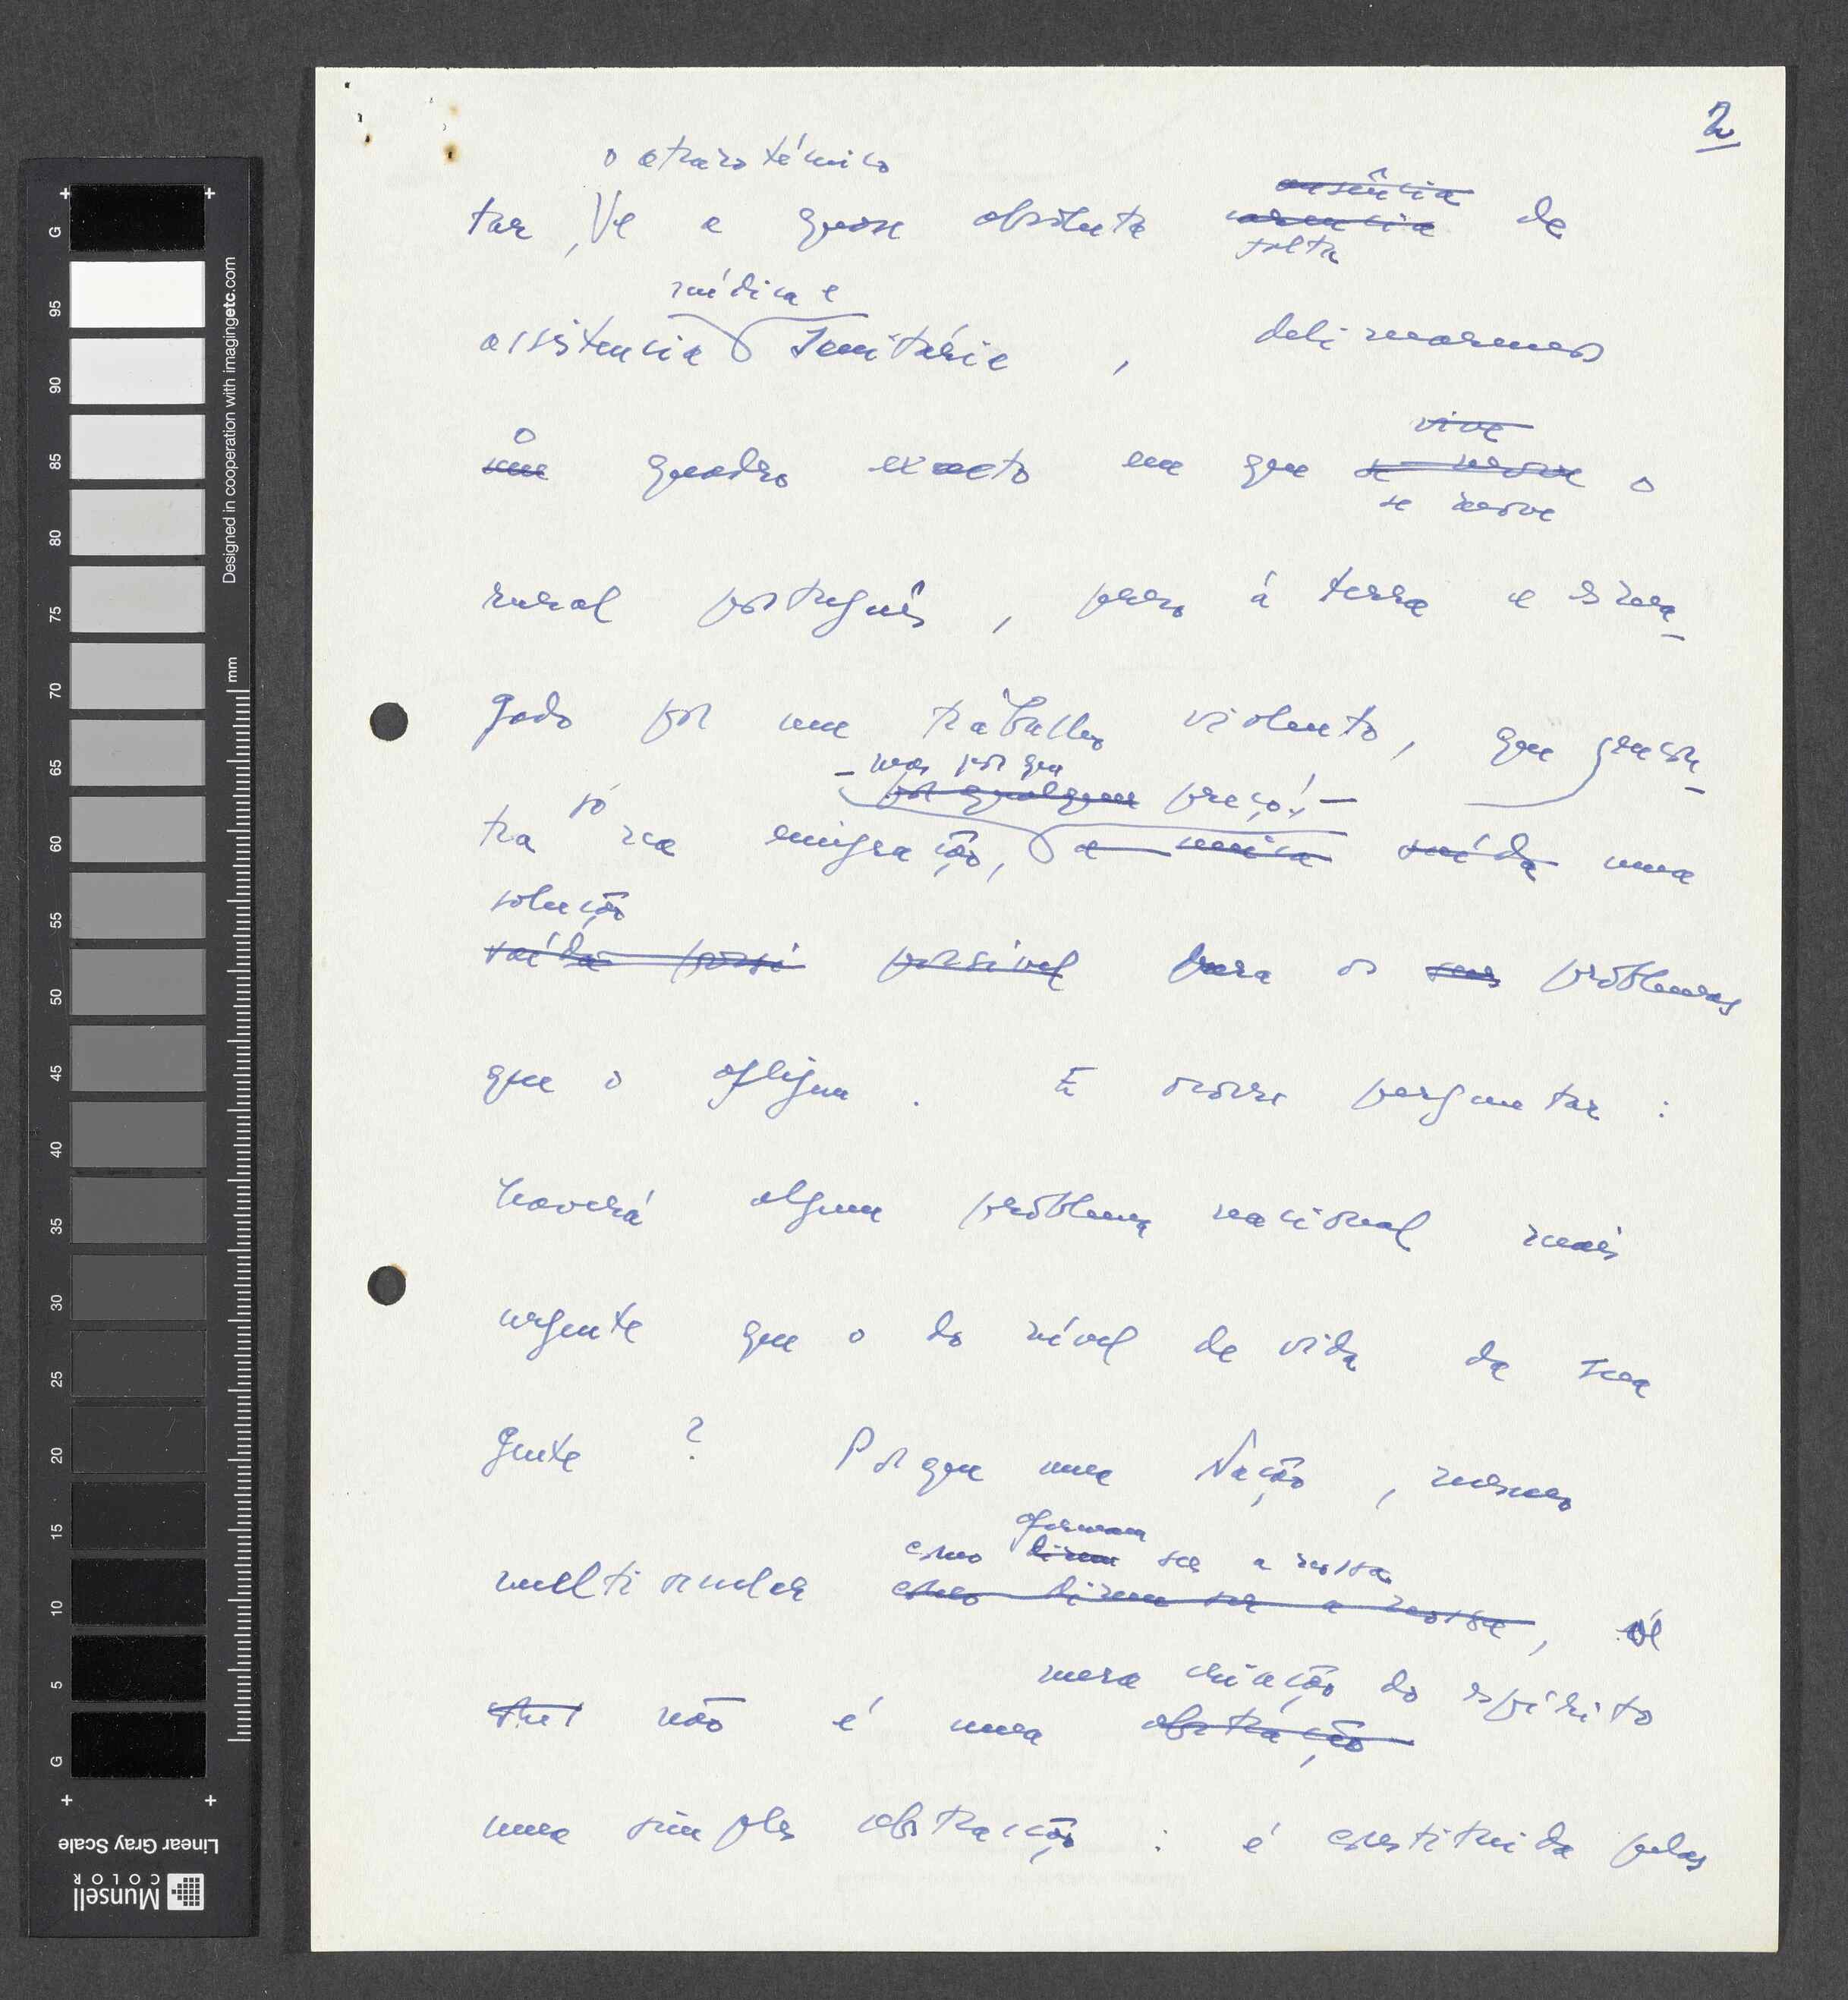 2
o atraso técnico
ausência
tar, e a quase absoluta carencia de
falta
médica e
assistencia sanitária, delinearmos
o vive
um quadro exacto em que se move o
se move
rural português, preso à terra e esma_
gado por um trabalho violento, que encon_
_ mas por que
só por qualquer preço! _
tra na emigração, a unica saída uma
solução
saída possi possivel para os seus problemas
que o afligem. E ocorre perguntar:
haverá algum problema nacional mais
urgente que o do nível de vida da sua
gente? Porque uma Nação, mesmo
afirmam
como dizem ser a nossa
multi racial como dizem ser a nossa,
mera criação do espírito
não é uma abstração
uma simples abstracção: é constituida pelas
G
95
90
85
80
75
70
65
60
55
50
45
40
35
30
25
20
15
10
5
G
mm
Designed in cooperation with imagingetc.com
Linear Gray Scale
Munsell
COLOR